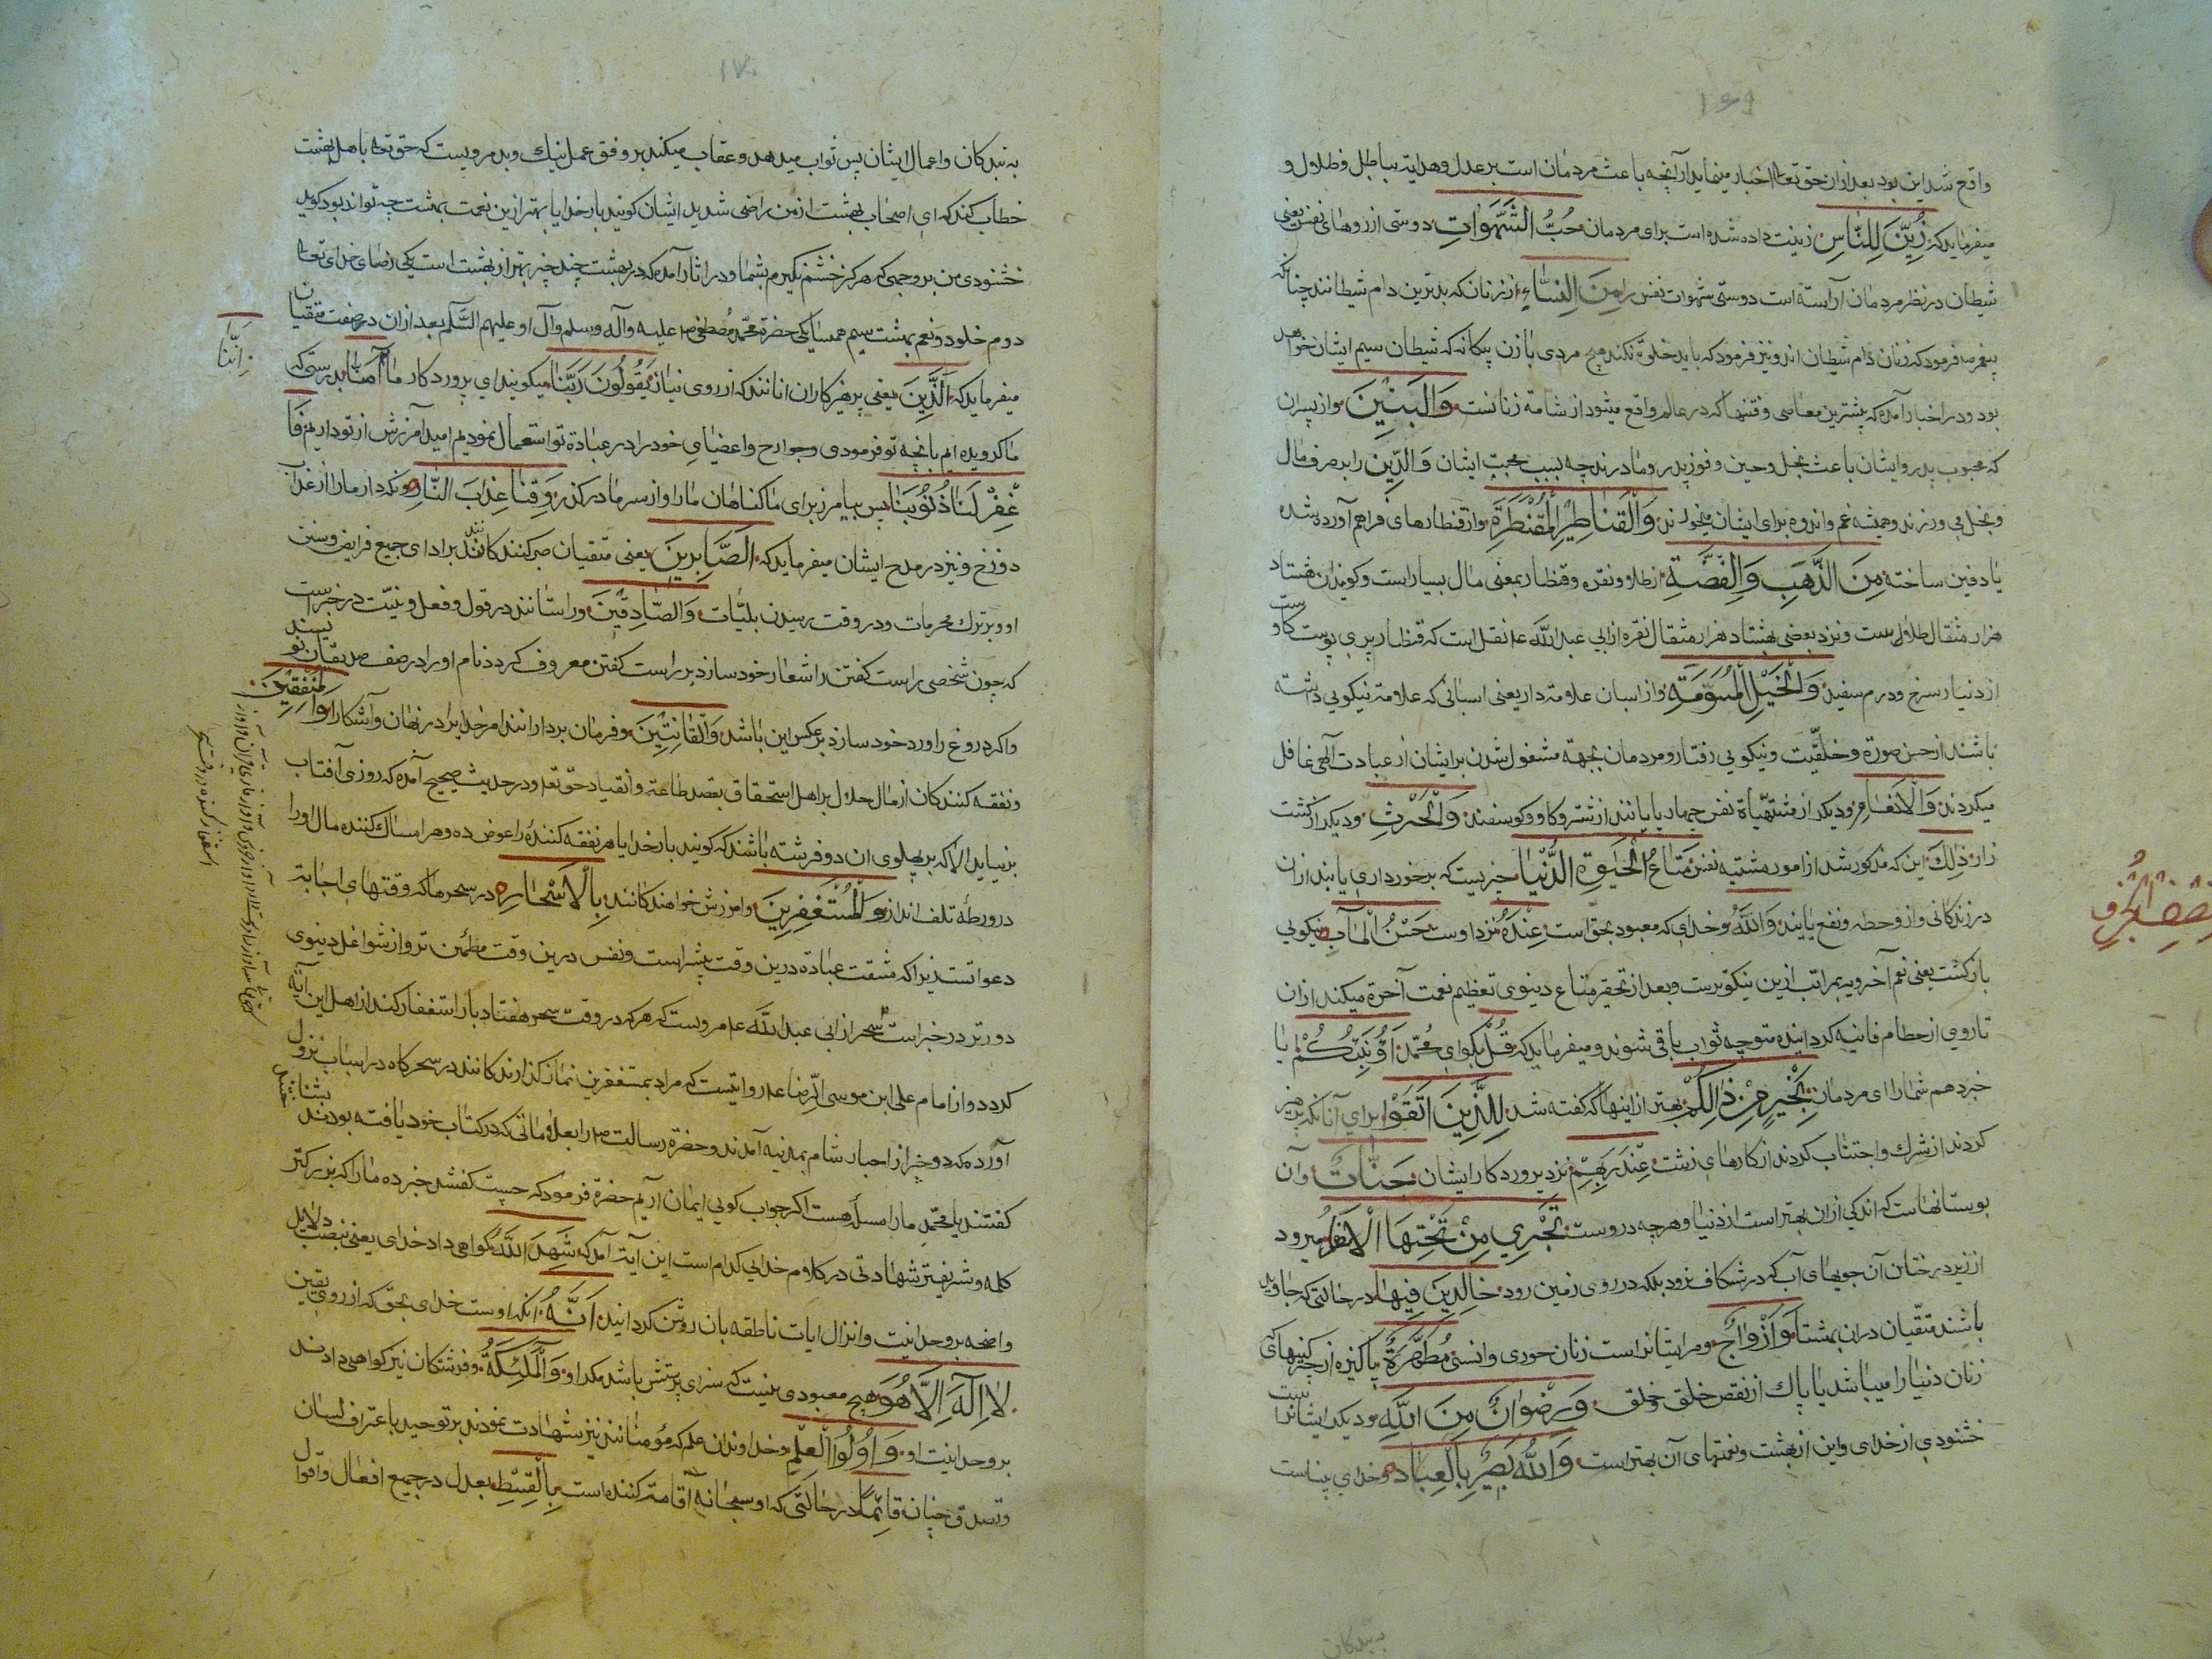 ۱۶۹
واقع شد این بود بعد ازان حق تعالی اخبار مینماید از آنچه باعث مردمان است بر عدل و هدایة بباطل و ظلال و
میفرماید که زُیِّنَ لِلنَّاسِ زینت داده شده است برای مردمان حُبُّ الشَّهَوَاتِ دوستی آرزوهای نفس یعنی
شیطان در نظر مردمان آراسته است دوستی شهوات نفس را مِنَ النِّسَاءِ از زنان که بدترین دام شیطانند چنانکه
پیغمبر فرمود که زنان دام شیطان اند و نیز فرمود که باید خلوة نکند هیچ مردی با زن بیگانه که شیطان سیم ایشان خواهد
بود و در اخبار آمده که بیشترین معاصی و فتنها که در عالم واقع میشود از شامة زنانست وَالْبَنِینَ و از پسران
که محبوب پدر و ایشان باعث بخل و جبن و فوز پدر و مادرند چه بسبب محبت ایشان وَالدّین را بد صرف مال
و بخل می ورزند و همیشه غم و اندوه برای ایشان میخورند وَالْقَنَاطِیرِ الْمُقَنْطَرَةِ و از قنطارهای فراهم آورده شده
یا دفین ساخته مِنَ الذَّهَبِ وَالْفِضَّةِ از طلا و نقره و قنطار بمعنی مال بسیار است و کویند ان هشتاد
هزار مثقال طلاست و نزد بعضی هشتاد هزار مثقال نقره از ابی عبدالله ع نقل است که قنطار پری پوست کاو
از دنیار سرخ و درم سفید وَالْخَیْلِ الْمُسَوَّمَةِ و از اسبان علامة دار یعنی اسبانی که علامة نیکویی داشته
باشند از حسن صورة و خلقیّت و نیکویی رفتار و مردمان بجهة مشغول شدن بر ایشان از عبادت آلهی غافل
میکردند وَالْاَنْعَامِ و دیکر از مشتهیاة نفس چهارپایانند از شتر و کاو و کوسفند وَالْحَرْثِ و دیکر از کشت
زار ذٰلِكَ این که مذکور شد از امور مشتبه نفس مَتَاعُ الْحَیٰوةِ الدُّنْیَا چیزیست که برخورداری یابند ازان
در زندکانی و از وحظ و نفع یابند وَاللّٰهُ و خدای که معبود بحق است عِنْدَهُ نزد اوست حُسْنُ الْمَاٰبِ نیکویی
بازکشت یعنی نعم آخرویه بمراتب ازین نیکوترست و بعد از تحقیر متاع دنیوی تعظیم نعمت آخرة میکند ازان
تا روی از حطام فانیه کردانیده متوجه ثواب باقی شوند و میفرماید که قُلْ بکو ای محمّد اَؤُنَبِّئُکُمْ ایا
خبر دهم شما را ای مردمان بِخَیْرٍ مِنْ ذٰلِکُمْ بهتر از اینها که کفته شد لِلَّذِینَ اتَّقَوْا برای آنانکه پرهیز
کردند از شرك و اجتناب کردند از کارهای زشت عِنْدَ رَبِّهِمْ نزد پروردکار ایشان جَنَّاتٌ و آن
بوستانهاست که اندکی ازان بهتر است از دنیا و هرچه دروست تَجْرِی مِنْ تَحْتِهَا الْاَنْهَارُ میرود
از زیر درختان آن جویهای آب که در شکاف نرود بلکه در روی زمین رود خَالِدِینَ فِیهَا در حالتی که جاوید
باشند متقیان دران بهشتها وَاَزْوَاجٌ و مر ایشانراست زنان حوری و انسی مُطَهَّرَةٌ پاکیزه از
زنان دنیا را میباشد یا پاك از نقص خلق و خلق وَرِضْوَانٌ مِنَ اللّٰهِ و دیکر ایشانراست
خشنودی از خدای و این از بهشت و نعمتهای آن بهتر است وَاللّٰهُ بَصِیرٌ بِالْعِبَادِ و خدای بیناست
به بندکان
نصف الحزب
۱۷۰
به بندکان و اعمال ایشان پس ثواب میدهد و عقاب میکند بر وفق عمل نیك و بد مرویست که حق تعالی با اهل بهشت
خطاب کند که ای اصحاب بهشت از من راضی شدید ایشان کویند بار خدایا بهتر ازین نعمت بهشت چه تواند بود کوید
خشنودی من بر وجهی که هرکز خشم نکیرم بشما و در اثار آمده که در بهشت چند چیز بهتر از بهشت است یکی رضای خدای تعالی
دوم خلود و نعم بهشت سیم همسایکی حضرة محمّد مصطفی علیه وآله وسلم وآل او علیهم السَّلم بعد ازان در صفت متقیان
میفرماید که اَلَّذِینَ یعنی پرهیزکاران انانند که از روی نیاز یَقُولُونَ رَبَّنَا میکویند ای پروردکار ما اٰمَنَّا بدرستی که
اِنَّنَا
ما کرویده ایم بانچه تو فرمودی و جوارح و اعضای خود را در عبادة تو استعمال نمودیم امید آمرزش از تو داریم فَا
غْفِرْ لَنَا ذُنُوبَنَا پس بیامرز برای ما کناهان ما را و از سر ما درکذر وَقِنَا عَذَابَ النَّارِ و نکه دار ما را از عذاب
دوزخ و نیز در مدح ایشان میفرماید که اَلصَّابِرِینَ یعنی متقیان صبر کنندکانند بر ادای جمیع فرایض و سنن
او و بر ترك محرمات و در وقت رسیدن بلیّات وَالصَّادِقِینَ و راستانند در قول و فعل و نیّت در خبر است
که چون شخصی راست کفتن را شعار خود سازد بر راست کفتن معروف کردد نام او را در صف صدیقان نویسند
و اکر دروغ را ورد خود سازد بر عکس این باشد وَالْقَانِتِینَ و فرمان بردارانند امر خدایرا در نهان و آشکارا وَالْمُنْفِقِینَ
و نفقه کنندکان از مال حلال بر اهل استحقاق بقصد طاعة و انقیاد حق تعالی و در حدیث صحیح آمده که روزی آفتاب
بر نیاید الا که بر پهلوی ان دو فرشته باشند که کویند بار خدایا هر نفقه کنندۀ را عوض ده و هر امساك کننده مال او را
در ورطۀ تلف انداز وَالْمُسْتَغْفِرِینَ و امرزش خواهندکانند بِالْاَسْحَارِ در سحرها که وقتهای اجابة
دعواتست زیرا که مشقت عبادة درین وقت بیشتر است و نفس درین وقت مطمئن تر و از شواغل دنیوی
دورتر در خبر است از ابی عبدالله ع مرویست که هرکه در وقت سحر هفتاد بار استغفار کند از اهل این آیة
کردد و از امام علی ابن موسی الرّضا ع روایتست که مراد بمستغفرین نماز کذارندکانند در سحرکاه در اسباب نزول
آورده که دو حبر از احبار شام بمدینه آمدند و حضرة رسالت را بعلاماتی که در کتاب خود یافته بودند بشناختند
کفتند یا محمّد ما را مسئله هست اکر جواب کویی ایمان آریم حضرة فرمود که چیست کفتند خبر ده ما را که بزرکتر
کلمه و شریفتر شهادتی در کلام خدایی کدام است این آیة آمد که شَهِدَ اللّٰهُ کواهی داد خدای یعنی بنصب دلایل
واضحه بر وحدانیت و انزال ایات ناطقه بان روشن کردانید اَنَّهُ انکه اوست خدای بحق که از روی یقین
لَا اِلٰهَ اِلَّا هُوَ هیچ معبودی نیست که سزای پرستش باشد مکر او وَالْمَلٰئِکَةُ و فرشتکان نیز کواهی دادند
بر وحدانیت او وَاُولُوا الْعِلْمِ و خداوندان علم که مؤمنانند نیز شهادت نمودند بر توحید باعتراف لسان
و تصدیق جنان قَائِمًا در حالتی که او سبحانه اقامة کننده است بِالْقِسْطِ بعدل در جمیع افعال و اقوال